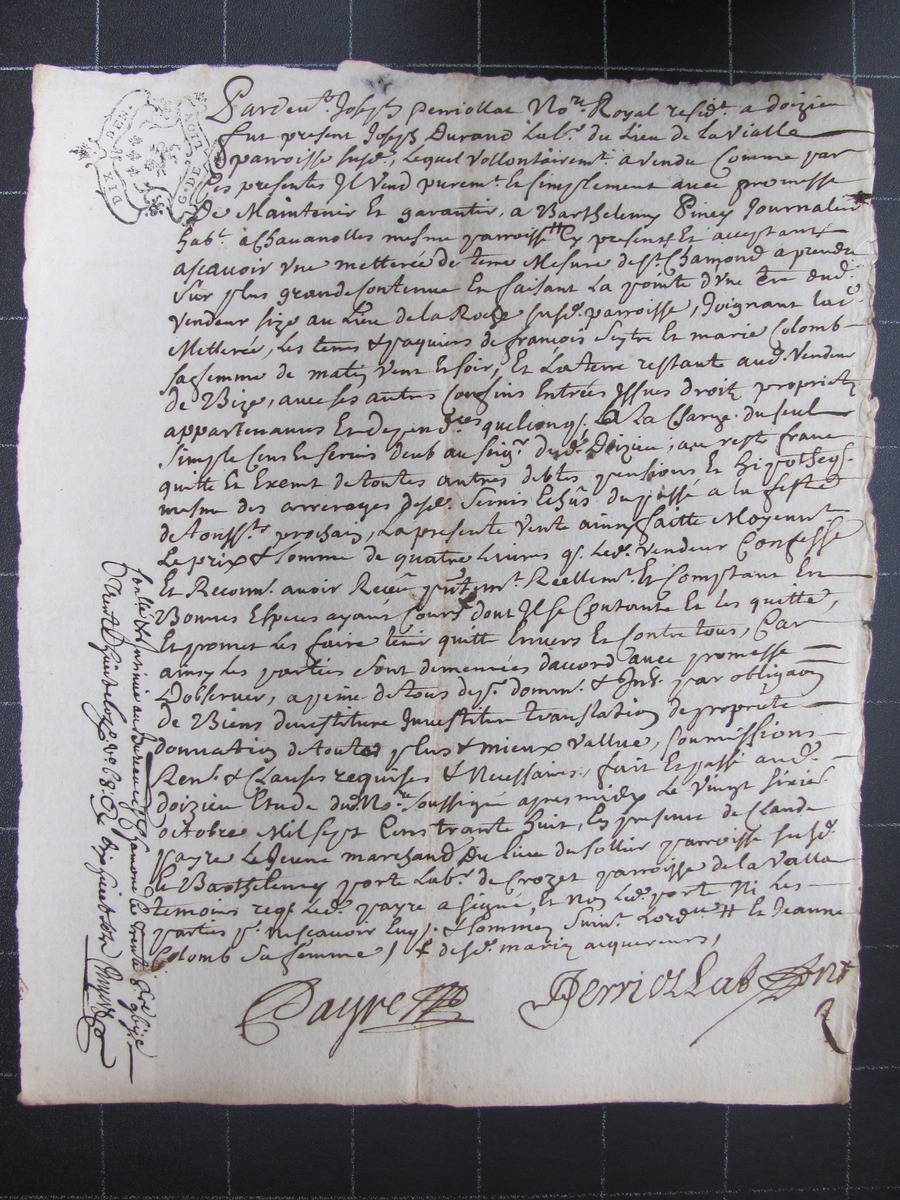 DIX DEN
G. DE LION
Pardeut. Joseph perriollat Nore. Royal residt. a doizieu
fut present Joseph Durand Labr. du Lieu de la Vialle
parroisse susd., Lequel vollontairemt. a vendu Comme par
ses presentes Il Vend puremt. Et simplement avec promesse
de Maintenir Et garantir, a Barthelemy Piney Journalier
habt. a Chavanolles mesme parroisse cy present Et acceptant
ascavoir Vne metterée de terre Mesure de St. Chamond a prendre
sur plus grande Contenue Et faisant La pointe d'Vne terre dud.
Vendeur size au Lieu de la Roche susd. parroisse, Joignant lad.
Metterée, Les terres & paquiers de françois seytre Et marie Colomb
sa femme de matin Vent Et soir, Et La terre restante aud. Vendeur
de Bize, avec ses autres Confins Entrées Issues droits proprietés
appartenances Et dependces. quelconqs. A La Charge du seul
simple Cens Et servis deub au seigr. dud. Doizieu, au reste franc
quitte Et Exempt de toutes autres debtes pensions Et hipotheqs.
mesme des arrerages desd. servis Echus du passé a la feste
de Touss. prochain, La presente Vente ainsy faitte Moyent.
Le prix & somme de quatre Livres qe. Led. Vendeur Confesse
Et Reconn. avoir Receu Reellemt. Et Comptant En
Bonnes Especes ayant Cours dont Il se Contante Et les quitte,
Et promet les faire tenir quitte Envers Et Contre tous, Car
ainsy les parties sont demeurées d'accord avec promesse
d'observer, a peine de tous domm. & Int. par obligaon
de Biens devestiture Investiture translation de proprieté
donnation de toutes plus & mieux Vallue, soumissions
Ren. & Clauses requises & Necessaires, fait Et passé aud.
doizieu Etude du Nore. soussigné apres midy Le Vingt sixie
octobre Mil sept Cens trante huit, En presence de Claude
payre Le Jeune marchand Du lieu du sollier parroisse susd.
Et Barthelemy porte Labr. de Crozet parroisse de la Valla
temoins reqs. Led. payre a signé, Et Non Led. porte Ni Les
parties pr. ne scavoir Enqs. & sommes suivt. Lordce. Et Jeanne
Colomb sa femme / desd. mariés acquereurs,
Payre
Perriollat Nre
Contlle. & Insinué au Bureau de St. Chamond Le trente 8bre